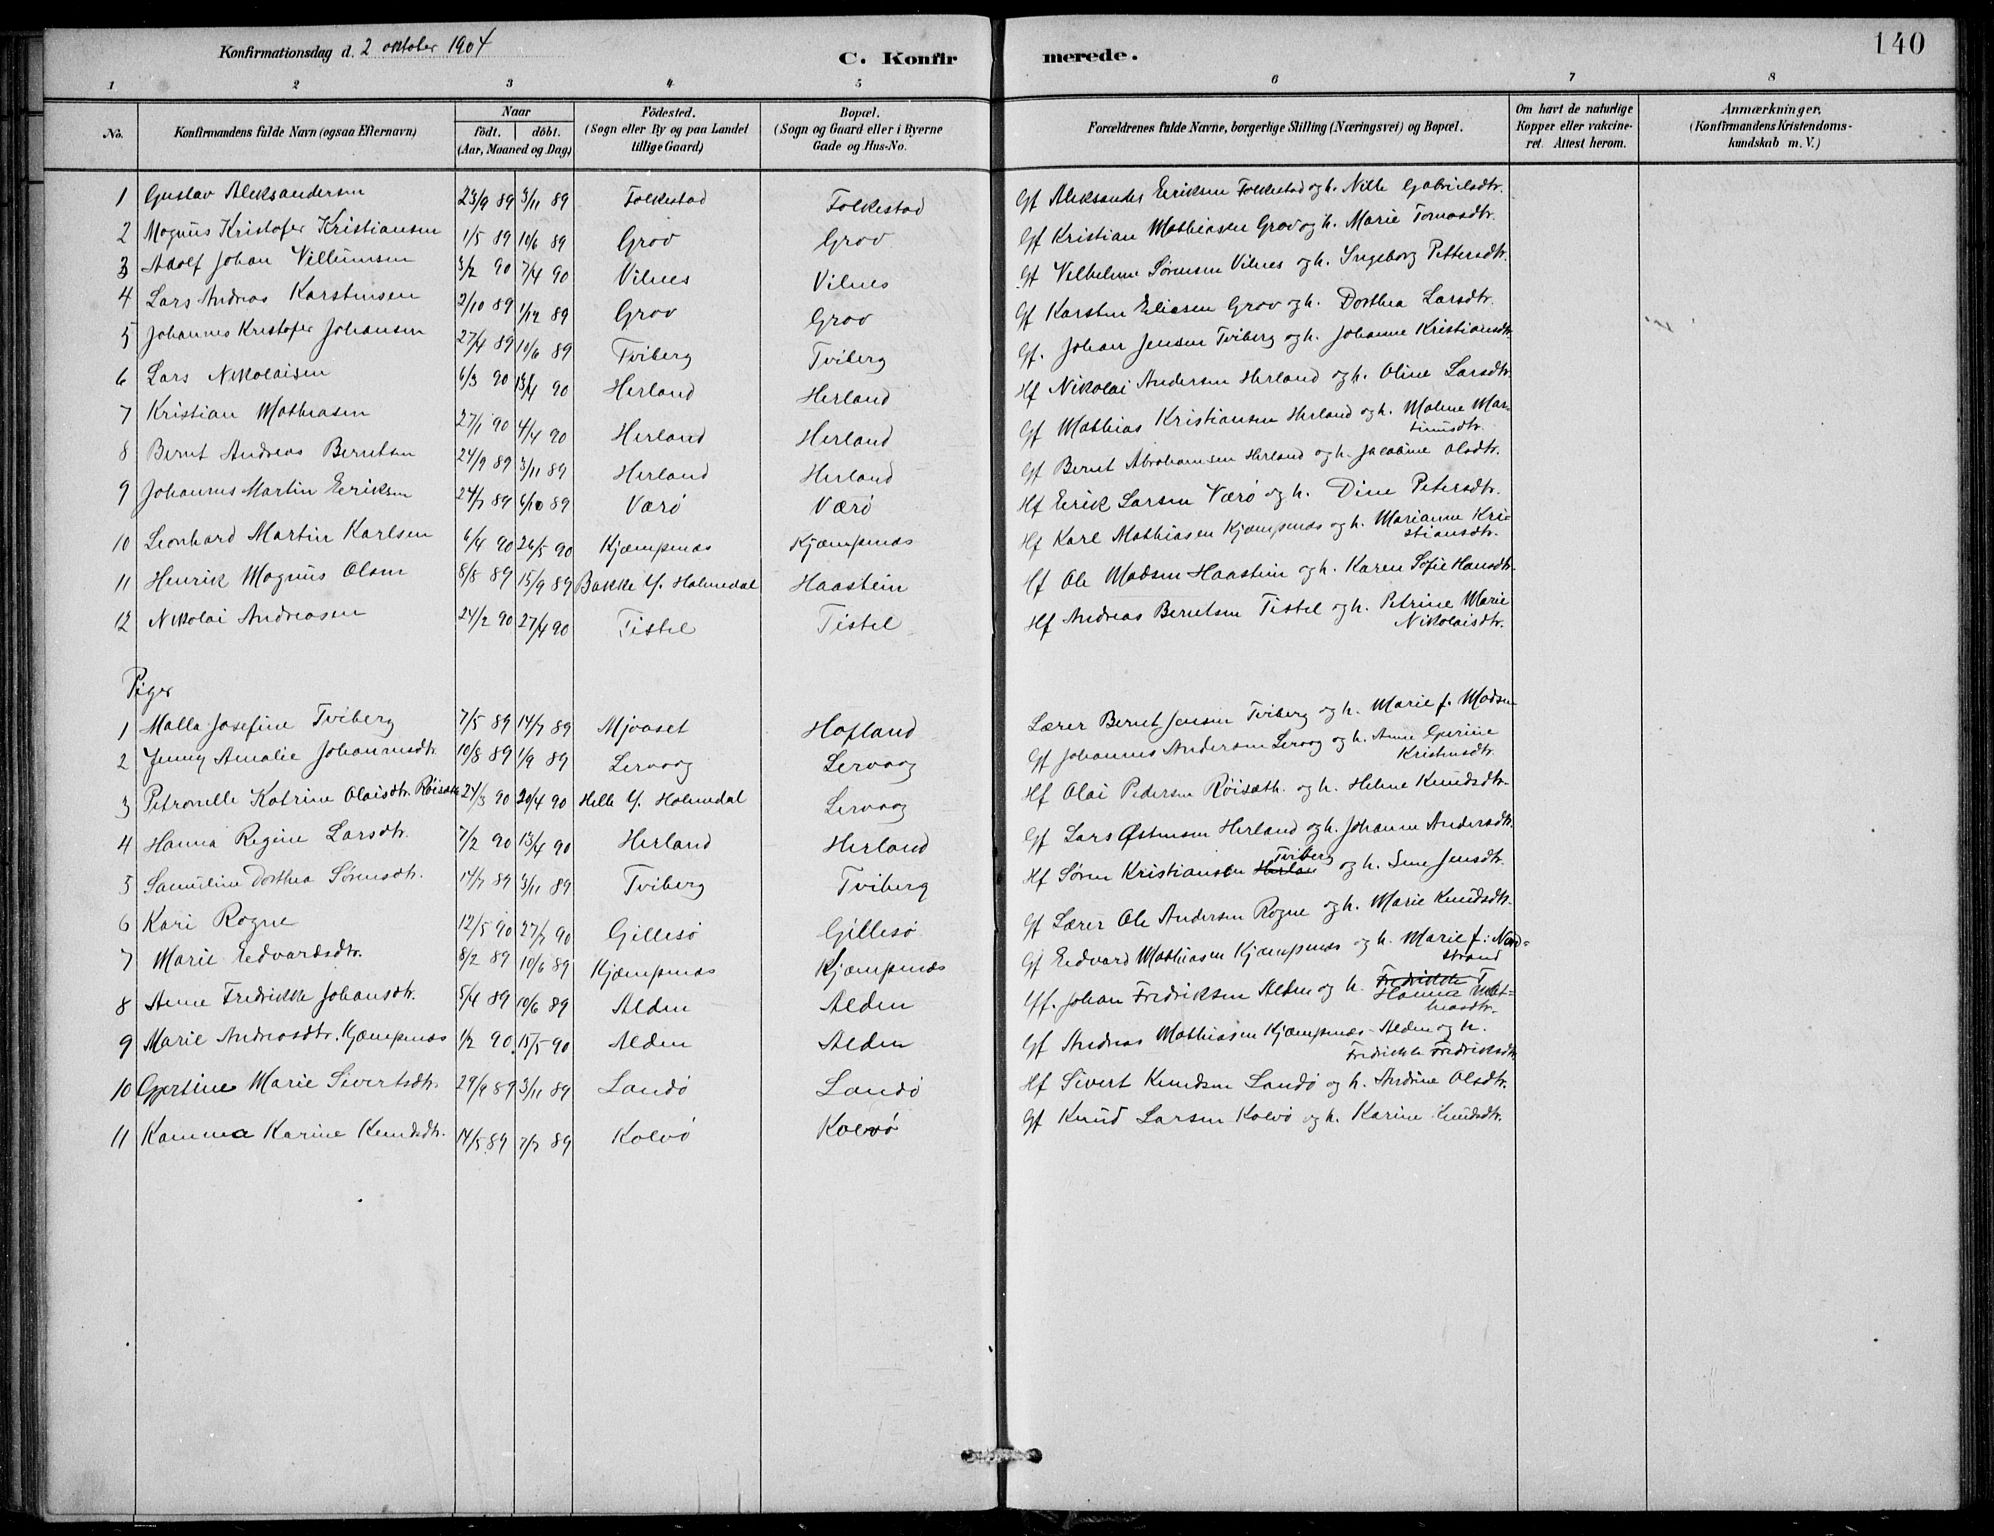 Konfirmationsdag d. 2 oktober 1904
C. Konfirmerede.
140
1 2 3 4 5 6 7 8
No.
Konfirmandens fulde Navn (ogsaa Efternavn)
Naar
født. døbt.
(Aar, Maaned og Dag)
Fødested.
(Sogn eller By og paa Landet
tillige Gaard)
Bopæl.
(Sogn og Gaard eller i Byerne
Gade og Hus-No.
Forældrenes fulde Navne, borgerlige Stilling (Næringsvei) og Bopæl.
Om havt de naturlige
Kopper eller vakcine-
ret. Attest herom.
Anmærkninger.
(Konfirmandens Kristendoms-
kundskab m. V.)
1 Gustav Aleksandersen 23/9 89 3/11 89 Folkestad Folkestad Gf Aleksander Eeriksen Folkestad og h. Nille Gabrielsdtr.
2 Magnus Kristofer Kristiansen 1/5 89 10/6 89 Grov Grov Gf Kristian Mathiasen Grov og h. Marie Tomasdtr.
3 Adolf Johan Villumsen 3/2 90 7/4 90 Vilnes Vilnes Gf Velhelm Sørensen Vilnes og h. Ingeborg Pettersdtr.
4 Lars Andreas Karstensen 2/10 89 1/12 89 Grov Grov Gf Karsten Eliasen Grov og h. Dorthea Larsdtr.
5 Johannes Kristofer Johansen 27/4 89 10/6 89 Tviberg Tviberg Gf. Johan Jensen Tviberg og h. Johanne Kristiansdtr.
6 Lars Nikolaisen 6/3 90 13/4 90 Herland Herland Hf Nikolai Andersen Herland og h. Oline Larsdtr.
7 Kristian Mathiasen 27/1 90 4/4 90 Herland Herland Gf Mathias Kristiansen Herland og h. Malene Mar-
tinusdtr.
8 Bernt Andreas Berntsen 24/9 89 3/11 89 Herland Herland Gf Bernt Abrahamsen Herland og h. Jacobine Olsdtr.
9 Johannes Martin Eeriksen 24/7 89 6/10 89 Værø Værø Hf Eerik Larsen Værø og h. Dine Petersdtr.
10 Leonhard Martin Karlsen 6/4 90 26/5 90 Kjæmpenæs Kjæmpenæs Hf Karl Mathiasen Kjæmpenæs og h. Marianne Kri-
stiansdtr.
11 Henrik Magnus Olsen 8/8 89 15/9 89 Bakke Y. Holmedal Haastein Hf Ole Madsen Haastein og h. Karen Sofie Hansdtr.
12 Nikolai Andreassen 24/2 90 27/4 90 Tistel Tistel Hf Andreas Berntsen Tistel og h. Petrine Marie
Nikolaisdtr.
Piger
1 Malla Josefine Tviberg 7/5 89 14/7 89 Mjvaset Hofland Lærer Bernt Jensen Tviberg og h. Marie f. Madsen
2 Jenny Amalie Johannesdtr. 10/8 89 1/9 89 Lervaag Lervaag Gf Johannes Andersen Lervaag og h. Anne Gurine
Kristensdtr.
3 Petronelle Katrine Olaisdtr. Røisæth 24/3 90 20/4 90 Helle Y. Holmedal Lervaag Hf Olai Pedersen Røisæth. og h. Helene Knudsdtr.
4 Hanna Regine Larsdtr. 7/2 90 13/4 90 Herland Herland Gf Lars Østensen Herland og h. Johanne Andersdtr.
5 Samuline Dorthea Sørensdtr. 14/7 89 3/11 89 Tviberg Tviberg Hf Søren Kristiansen Herlan Tviberg og h. Sine Jensdtr.
6 Kari Rogne 12/5 90 27/7 90 Gillesø Gillesø Gf Lærer Ole Andersen Rogne og h. Marie Knudsdtr.
7 Marie Eedvardsdtr. 8/2 89 10/6 89 Kjæmpenæs Kjæmpenæs Gf Eedvard Mathiasen Kjæmpenæs og h. Marie f: Nord-
strand
8 Anne Fredrikke Johansdtr. 5/4 89 10/6 89 Alden Alden Hf. Johan Fredriksen Alden og h. Fredrikke Hanna Mat-
hiasdtr.
9 Marie Andreasdtr. Kjæmpenæs 1/2 90 15/5 90 Alden Alden Gf Andreas Mathiasen Kjæmpenæs-Alden og h.
Fredrikke Fredriksdtr.
10 Gjertine Marie Sivertsdtr. 29/9 89 3/11 89 Landø Landø Hf Sivert Knudsen Landø og h. Andrine Olsdtr.
11 Kamma Karine Knudsdtr. 14/5 89 7/7 89 Kolvø Kolvø Gf Knud Larsen Kolvø og h. Karine Knudsdtr.